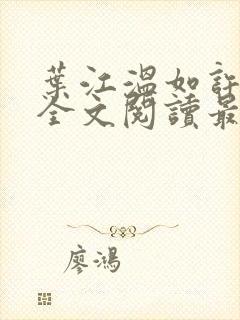 葉江溫如許
全文閱讀最
廖鴻